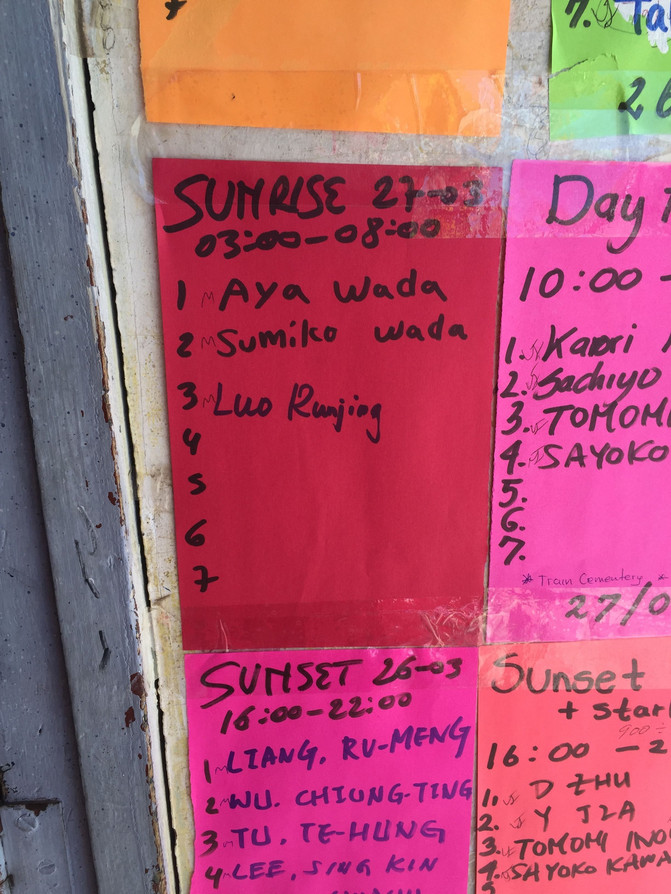 7
7.
26
SUNRISE 27-03
03:00-08:00
1 Aya Wada
2 Sumiko Wada
3 Luo Runjing
4
5
6
7
Day
10:00 -
1. Kaori
2. Sachiyo
3. TOMOMI
4. SAYOKO
5.
6.
7.
* Train Cementery *
27/0
SUNSET 26-03
16:00-22:00
1 LIANG, RU-MENG
2 WU. CHIUNG-TING
3 TU, TE-HUNG
4 LEE, SING KIN
Sunset
+ Star
16:00 - 2
1. D ZHU
2. Y JIA
3. TOMOMI INO
4. SAYOKO KAWA